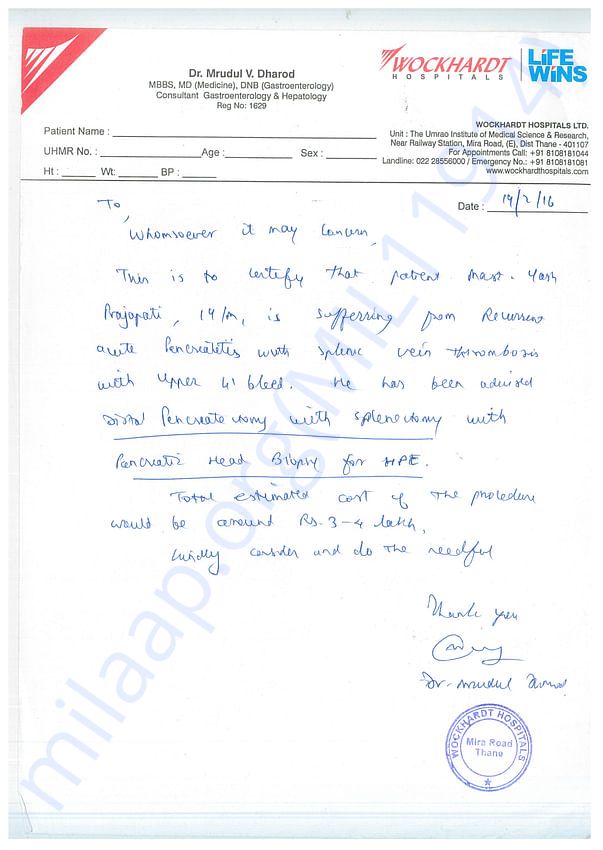 Dr. Mrudul V. Dharod
MBBS, MD (Medicine), DNB (Gastroenterology)
Consultant Gastroenterology & Hepatology
Reg No: 1629
WOCKHARDT
HOSPITALS
LiFE
WiNS
WOCKHARDT HOSPITALS LTD.
Unit : The Umrao Institute of Medical Science & Research,
Near Railway Station, Mira Road, (E), Dist Thane - 401107
For Appointments Call: +91 8108181044
Landline: 022 28556000 / Emergency No.: +91 8108181081
www.wockhardthospitals.com
Patient Name :
UHMR No. : Age : Sex :
Ht : Wt: BP :
Date : 19/2/16
To,
Whomsoever it may concern,
This is to certify that patient Mast. Yash
Prajapati, 14/m, is suffering from Recurrent
acute Pancreatitis with splenic vein thrombosis
with upper GI bleed. He has been advised
Distal Pancreatectomy with splenectomy with
Pancreatic Head Biopsy for HPE.
Total estimated cost of the procedure
would be around Rs. 3-4 lakh,
kindly consider and do the needful
Thank you
Dr. Mrudul Dharod
WOCKHARDT HOSPITALS
Mira Road
Thane
milaap.org(MIL11914)